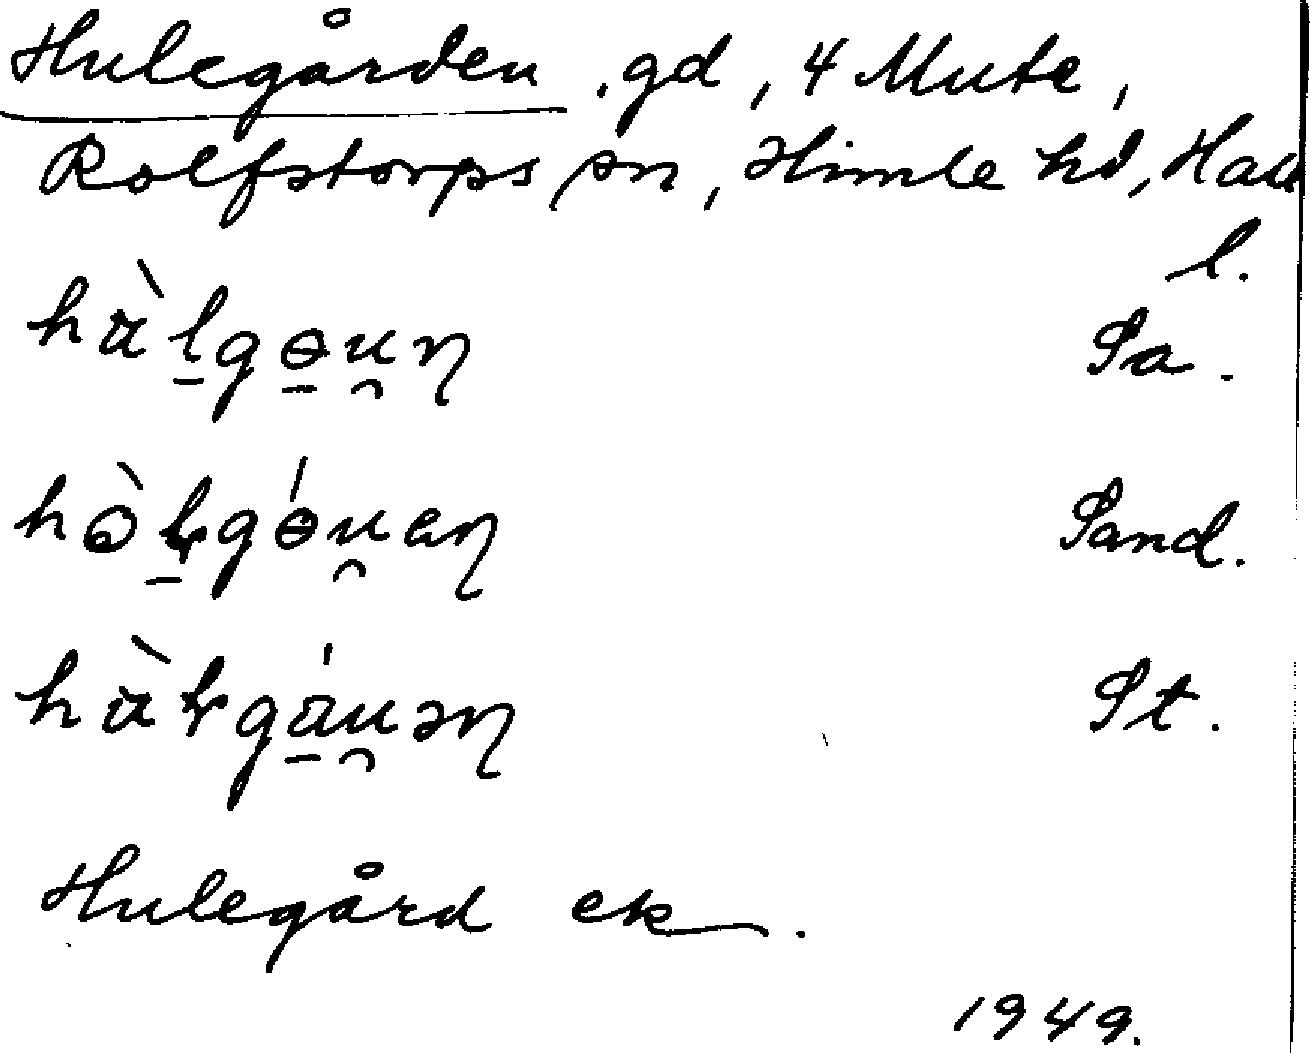 Hulegården . gd , 4 Mute ,
Rolfstorps sn , Himle hd, Hall
l.
hàl̠gɵ̠u̯ɳ Sa .
hòɽ̠gɵ́u̯eɳ Sand.
hàɽgá̠u̯əɳ St .
Hulegård ek .
1949.